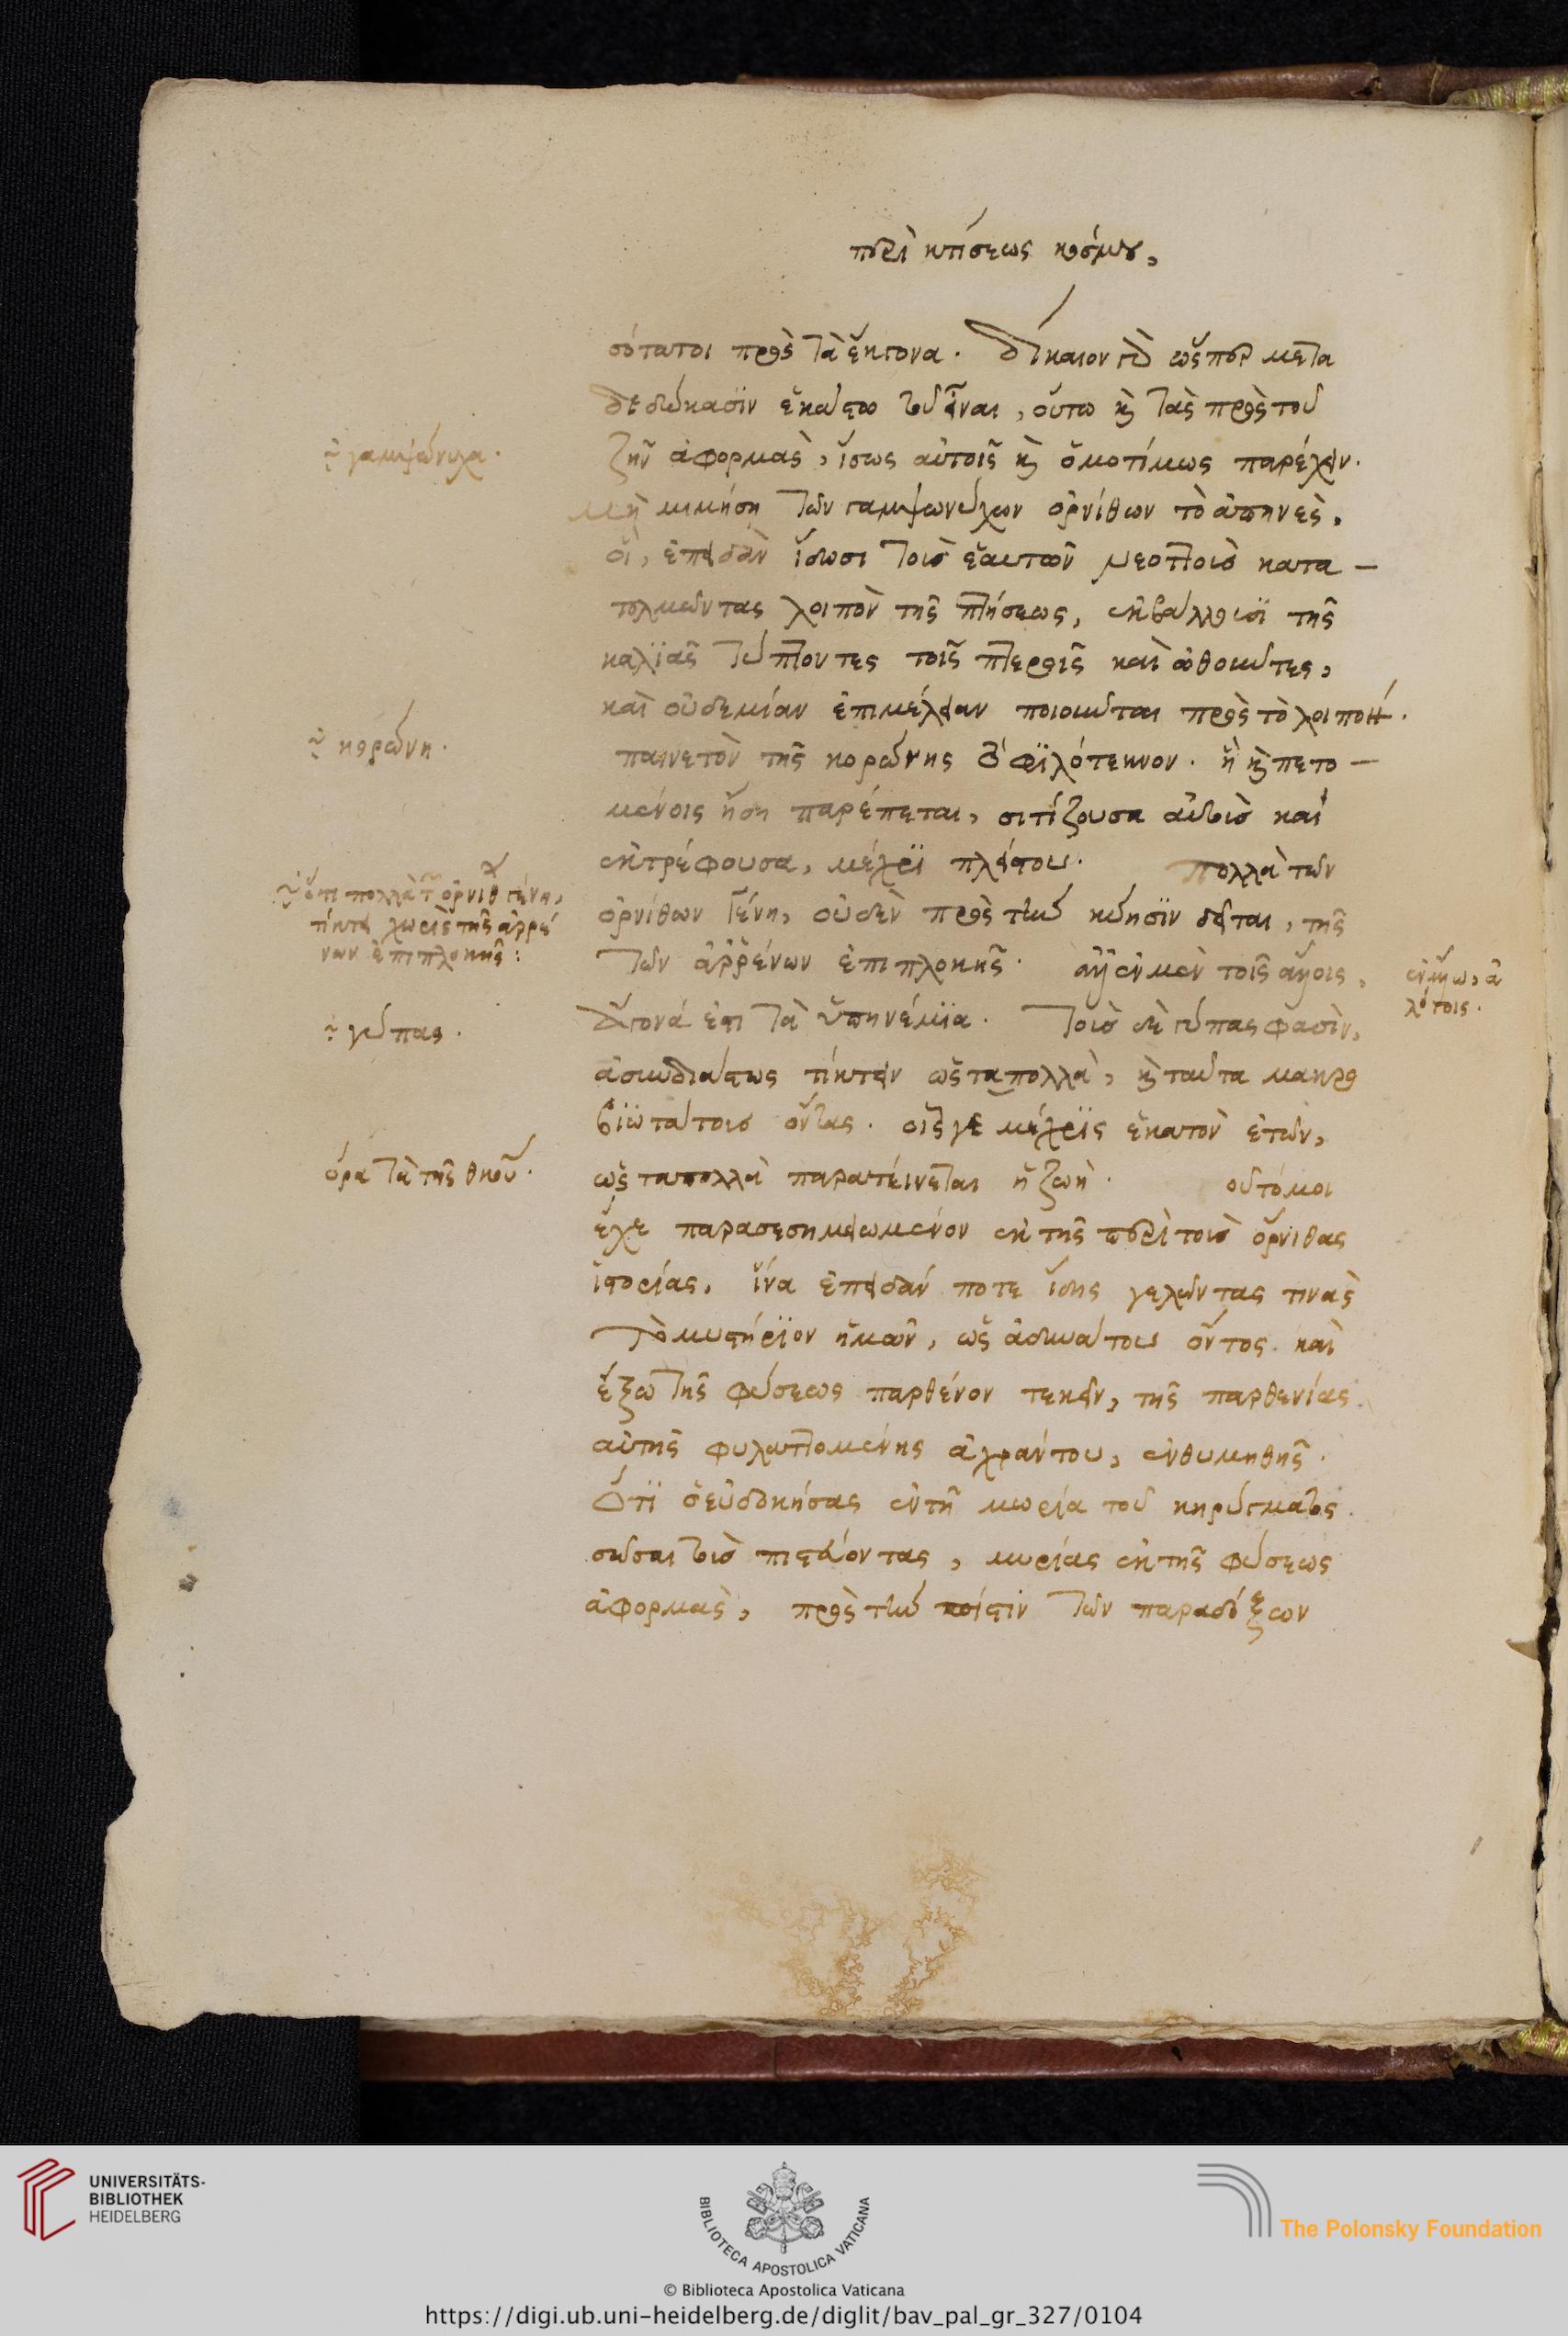 περὶ κτίσεως κόσμου,
σότατοι πρὸς τὰ ἔκγονα. δίκαιον γὰρ ὥσπερ μετα
δεδώκασϊν ἑκάστω τοῦ εἶναι, οὕτω καὶ τὰς πρὸς τοῦ
ζῆν ἀφορμὰς, ἴσως αὐτοῖς καὶ ὁμοτίμως παρέχειν.
μὴ μιμήση τῶν γαμψωνύχων ὀρνίθων τὸ ἀπηνὲς,
οἳ, ἐπειδὰν ἴδωσι τοὺς ἑαυτῶν νεοττοὺς κατα –
τολμῶντας λοιπὸν τῆς πτήσεως, ἐκβάλλουσϊ τῆς
καλϊᾶς τύπτοντες τοῖς πτεροῖς καὶ ὠθοῦντες,
καὶ οὐδεμίαν ἐπιμέλειαν ποιοῦνται πρὸς τὸ λοιπόν.
παινετὸν τῆς κορώνης τὸ φϊλότεκνον. ἣ καὶ πετο –
μένοις ἤδη παρέπεται, σιτίζουσα αὐτοὺς καὶ
ἐκτρέφουσα, μέχρϊ πλείστου. πολλὰ τῶν
ὀρνίθων γένη, οὐδὲν πρὸς τὴν κύησϊν δεῖται, τῆς
τῶν ἀρρένων ἐπιπλοκῆς. ἀλλ' ἐν μὲν τοῖς ἄλλοις,
ἄγονά ἐστι τὰ ὑπηνέμϊα. τοὺς δὲ γύπας φασὶν,
ἀσυνδιάστως τίκτειν ὡς τὰ πολλὰ, καὶ ταῦτα μακρο
βϊωτάτους ὄντας. οἷς γε μέχρϊς ἑκατὸν ἐτῶν,
ὡς ταπολλὰ παρατείνεται ἡ ζωὴ. οῦτό μοι
ἔχε παρασεσημειωμένον ἐκ τῆς περὶ τοὺς ὄρνιθας
ἱστορίας, ἵνα ἐπειδάν ποτε ἴδης γελῶντας τινὰς
τὸ μυστήρϊον ἡμῶν, ὡς ἀδυνάτου ὄντος καὶ
ἔξω τῆς φύσεως παρθένον τεκεῖν, τῆς παρθενίας
αὐτῆς φυλαττομένης ἀχράντου, ἐνθυμηθῆς.
ὅτϊ ὁ εὐδοκήσας ἐν τῆ μωρία τοῦ κηρύγματος
σῶσαι τοὺς πιστεύοντας, μυρίας ἐκ τῆς φύσεως
ἀφορμὰς, πρὸς τὴν πίστιν τῶν παραδόξων
γαμψώνυχα.
κορώνη.
ὅτι πολλὰ τῶν ὀρνίθ γένη,
τίκτει χωρὶς τῆς ἀρρέ
νων ἐπιπλοκῆς:
γύπας.
ὅρα τὰ τῆς θκου.
ἐν ἄλλω, ἀ
λόγοις.
UNIVERSITÄTS-
BIBLIOTHEK
HEIDELBERG
BIBLIOTECA APOSTOLICA VATICANA
The Polonsky Foundation
© Biblioteca Apostolica Vaticana
https://digi.ub.uni-heidelberg.de/diglit/bav_pal_gr_327/0104